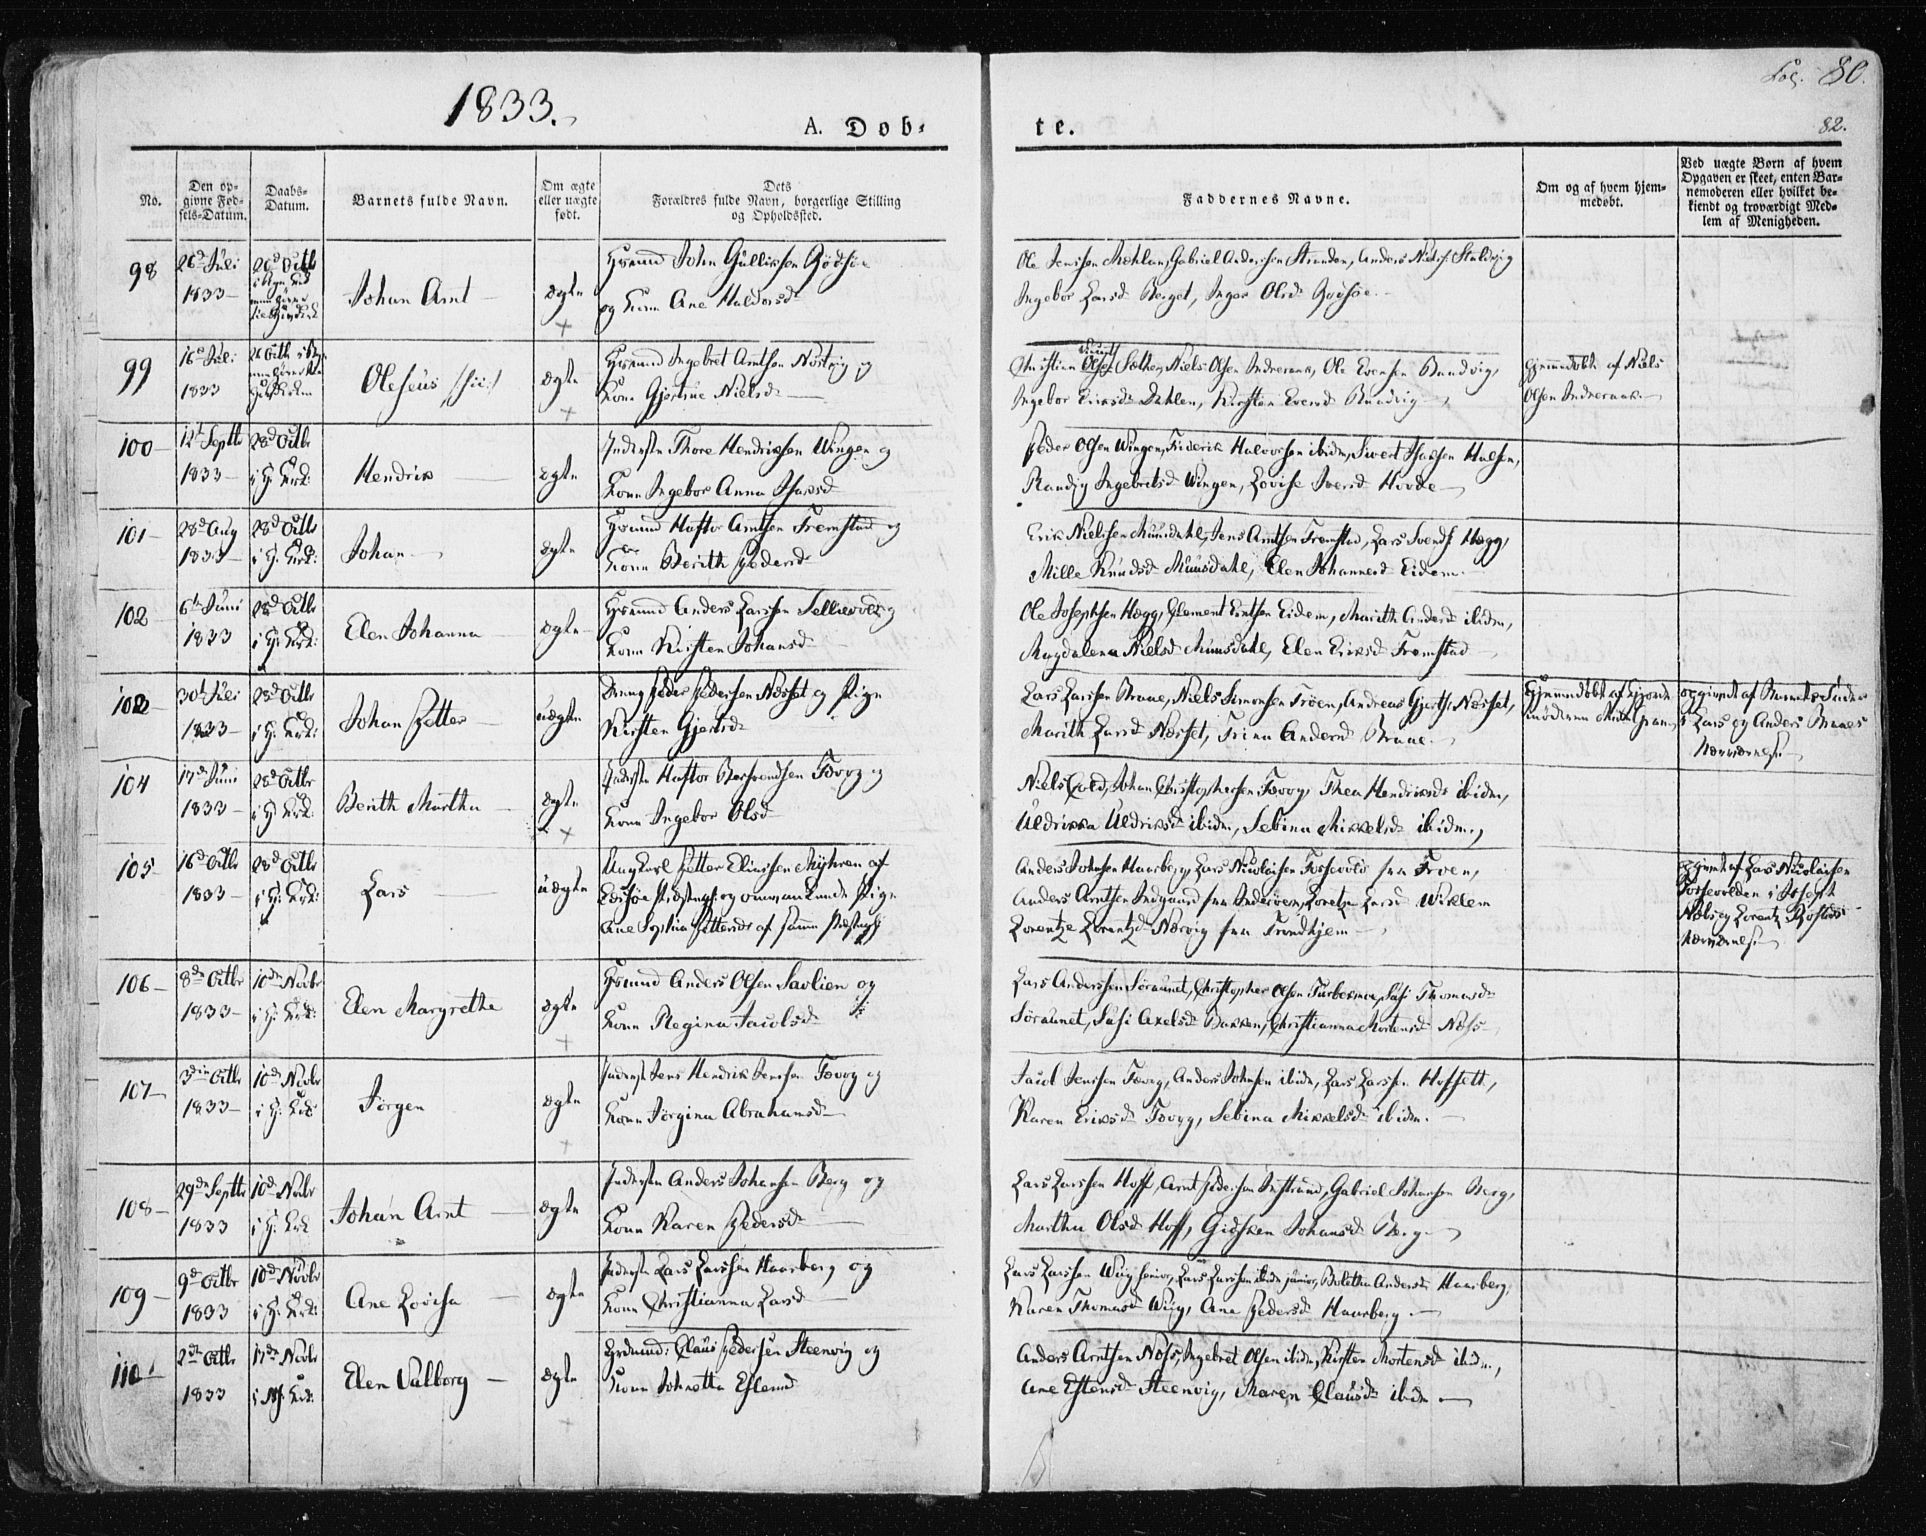 1833.
Fol. 80.
A. Døb-
te.
82.
No.
Den op-
givne Fød-
sels-Datum.
Daabs-
Datum.
Barnets fulde Navn.
Om ægte
eller uægte
født.
Dets
Forældres fulde Navn, borgerlige Stilling
og Opholdssted.
Faddernes Navne.
Om og af hvem hjem-
medøbt.
Ved uægte Børn af hvem
Opgaven er skeet, enten Bar-
nemoderen eller hvilket be-
kiendt og troværdigt Med-
lem af Menigheden.
98
26d Juli
1833
26d Octbr
Johan Arnt
ægte
Gmand John Gulliksen
og Kone Ane Haldorsd
Ole Jensen Mehlan, Gabriel Andersen Stranden, Anders
Ingebor Larsd Berget, Inger Olsd
99
16d Juli
1833
26 Octb
Oleseus /sic!/
ægte
Gmand Ingebret Arntsen Nostvig og
Kone Gjertrue Nielsd
Christian Sæther, Niels Olsen Indreraak, Ole Evensen Rundvig,
Ingebor Eriksd Dahlen, Kirsten Evensd Rundvig
Hjemmedøbt af Niels
Olsen Indreraak
100
12t Septbr
1833
28d Octbr
i H. Kirk:
Hendrik
ægte
Inderste Thore Hendriksen Wingen og
Kone Ingebor Anna Isaksd
Peder Olsen Wingen, Friderik Halvorsen ibidm, Sivert Isaksen Halsen,
Randig Ingebretsd Wingen, Lovise Iversd Hovde
101
28d Aug
1833
28d Octbr
i H. Kirk:
Johan
ægte
Gmand Haftor Arntsen Fremstad og
Kone Berith Pedersd
Erik Nielsen Muusdahl, Jens Arntsen Fremstad, Lars Svends Hegg,
Mille Knudsd Muusdahl, Elen Johannesd Eidem
102
6te Juni
1833
28d Octbr
i H. Kirk:
Elen Johanna
ægte
Gmand Anders Larsen Selliewold og
Kone Kirsten Johansd
Ole Josephsen Hegg, Clement Entsen Eidem, Marith Andersd ibidm,
Magdalena Nielsd Muusdahl, Elen Eriksd Fremstad
103
30t Juli
1833
28d Octbr
i H. Kirk:
Johan Petter
uægte
Dreng Peder Pedersen Nesset og Pige
Kirsten Gjertsd
Lars Larsen Braae, Niels Simonsen Troen, Andreas Gjerts Nesset,
Marith Larsd Nesset, Trina Andersd Braae
Hjemmedøbt af Gjorde
moderen
opgivet af Barnets Fader
i Lars og Anders Braaes
Nærværelse
104
17d Juni
1833
28d Octbr
i H. Kirk:
Berith Martha
ægte
Inderste Haftor BaRsvendsen Tevog og
Kone Ingebor Olsd
Niels Cold, Johan Christophersen Tevog, Thea Hendriksd ibidm,
Uldrikka Uldriksd ibidm, Sebina Mikkelsd ibidm,
105
16d Octbr
1833
28d Octbr
i H. Kirk:
Lars
uægte
Ungkarl Petter Eliassen Myhren af
Edsøe Præstegj: og ommeldende Pige
Ane Sophia Pettersd af samme Præstegj
Anders Johnsen Haarberg, Lars Nicolaisen Forsevold fra Froen,
Anders Arntsen Indgaard fra Inderøen, Loretze Larsd Wiklem
Lorentze Lorentzd Nervig fra Trondhjem
opgivet af Lars Nicolaisen
Forsevolden i Joseph
Næs og Lorentz
Nærværelse
106
8de Octbr
1833
10de Novbr
i H: Kirk:
Elen Margrethe
ægte
Gmand Anders Olsen Savlien og
Kone Regina Jacobsd
Lars Andersen Søraunet, Christopher Olsen Turbekmoe, Susi Thomasd
Søraunet, Susi Axelsd Bakken, Christianna Mortensd Ness
107
3die Octbr
1833
10d Novbr
i H: Kirk:
Jørgen
ægte
Inderste Jens Hendrik Jensen Tevog og
Kone Jørgina Abrahamsd
Jacob Jensen Tevog, Anders Johnsen ibidm, Lars Larsen Hoffsett,
Karen Eriksd Tevog, Sebina Mikkelsd ibidm.
108
29de Septbr
1833
10d Novbr
i H. Kirk
Johan Arnt
ægte
Inderste Anders Johansen Berg og
Kone Karen Pedersd
Lars Larsen Hoff, Arnt Pedersen Indstrand, Gabriel Johansen Berg,
Martha Olsd Hoff, Gidsken Johansd Berg
109
9d Octbr
1833
10d Novbr
i H: Kirk:
Ane Lovisa
ægte
Inderste Lars Larsen Haarberg og
Kone Christianna Larsd
Lars Larsen Wiig senior, Lars Larsen ibidm junior, Bolette Andersd Haarberg,
Karen Thomasd Wiig, Ane Pedersd Haarberg
110
2de Octbr
1833
17de Novbr
i Kirk:
Elen Valborg
ægte
Grdmand: Claus Pedersen Steenvig og
Kone Johnetta Estensd
Anders Arntsen Ness, Ingebret Olsen ibidm, Kirsten Mortensd ibidm,
Ane Estensd Steenvig, Maren Clausd ibidm